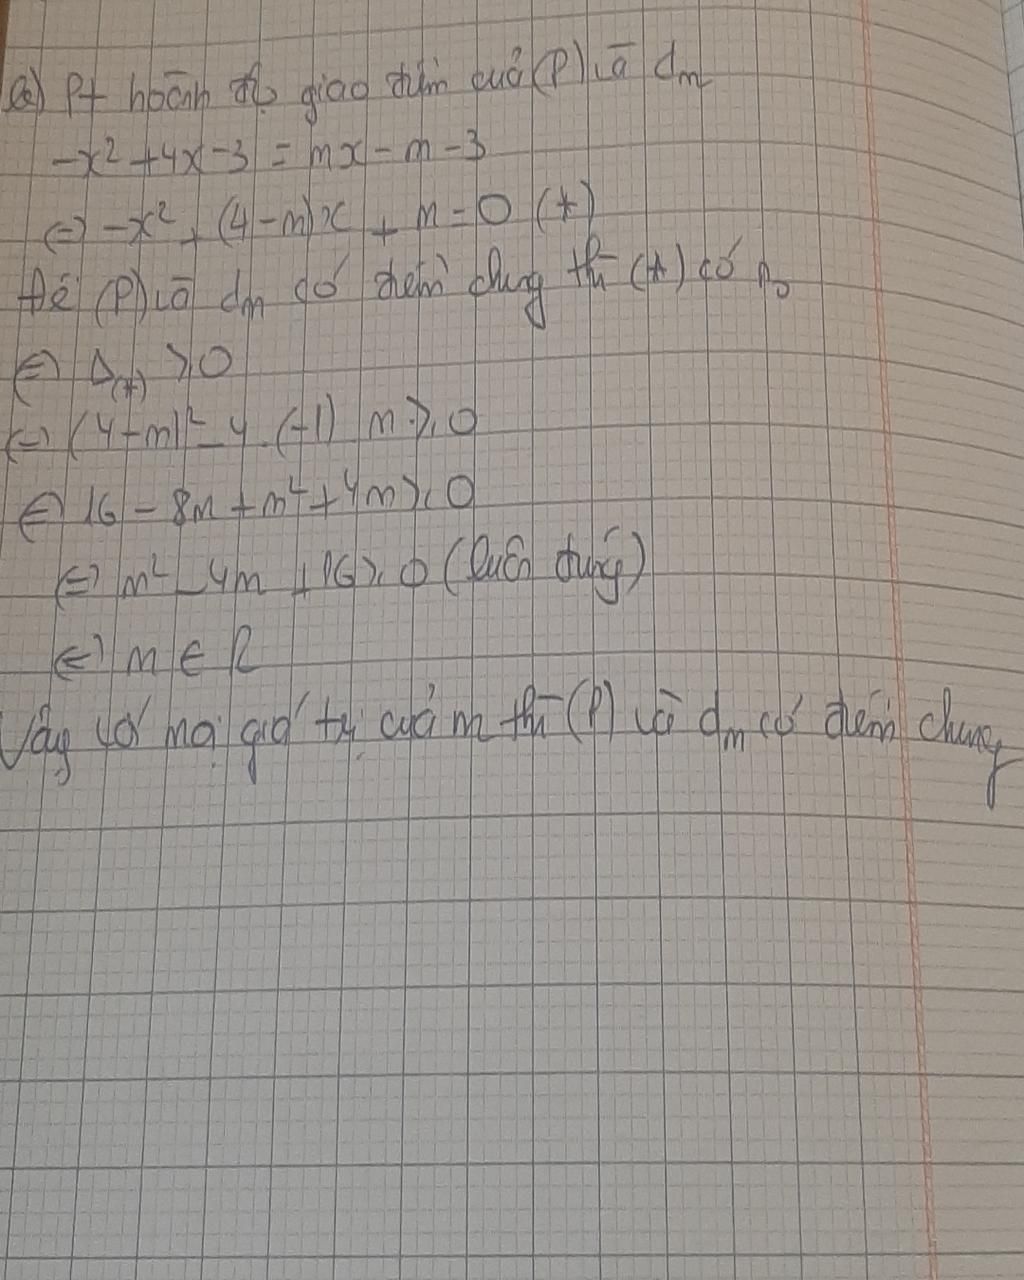 a) Pt hoành độ giao điểm của (P) và dm
-x² + 4x - 3 = mx - m - 3
<=> -x² + (4-m)x + m = 0 (*)
Để (P) và dm có điểm chung thì (*) có no
<=> Δ(*) ≥ 0
<=> (4-m)² - 4.(-1) m ≥ 0
<=> 16 - 8m + m² + 4m ≥ 0
<=> m² - 4m + 16 ≥ 0 (luôn đúng)
<=> m ∈ R
Vậy với mọi giá trị của m thì (P) và dm có điểm chung